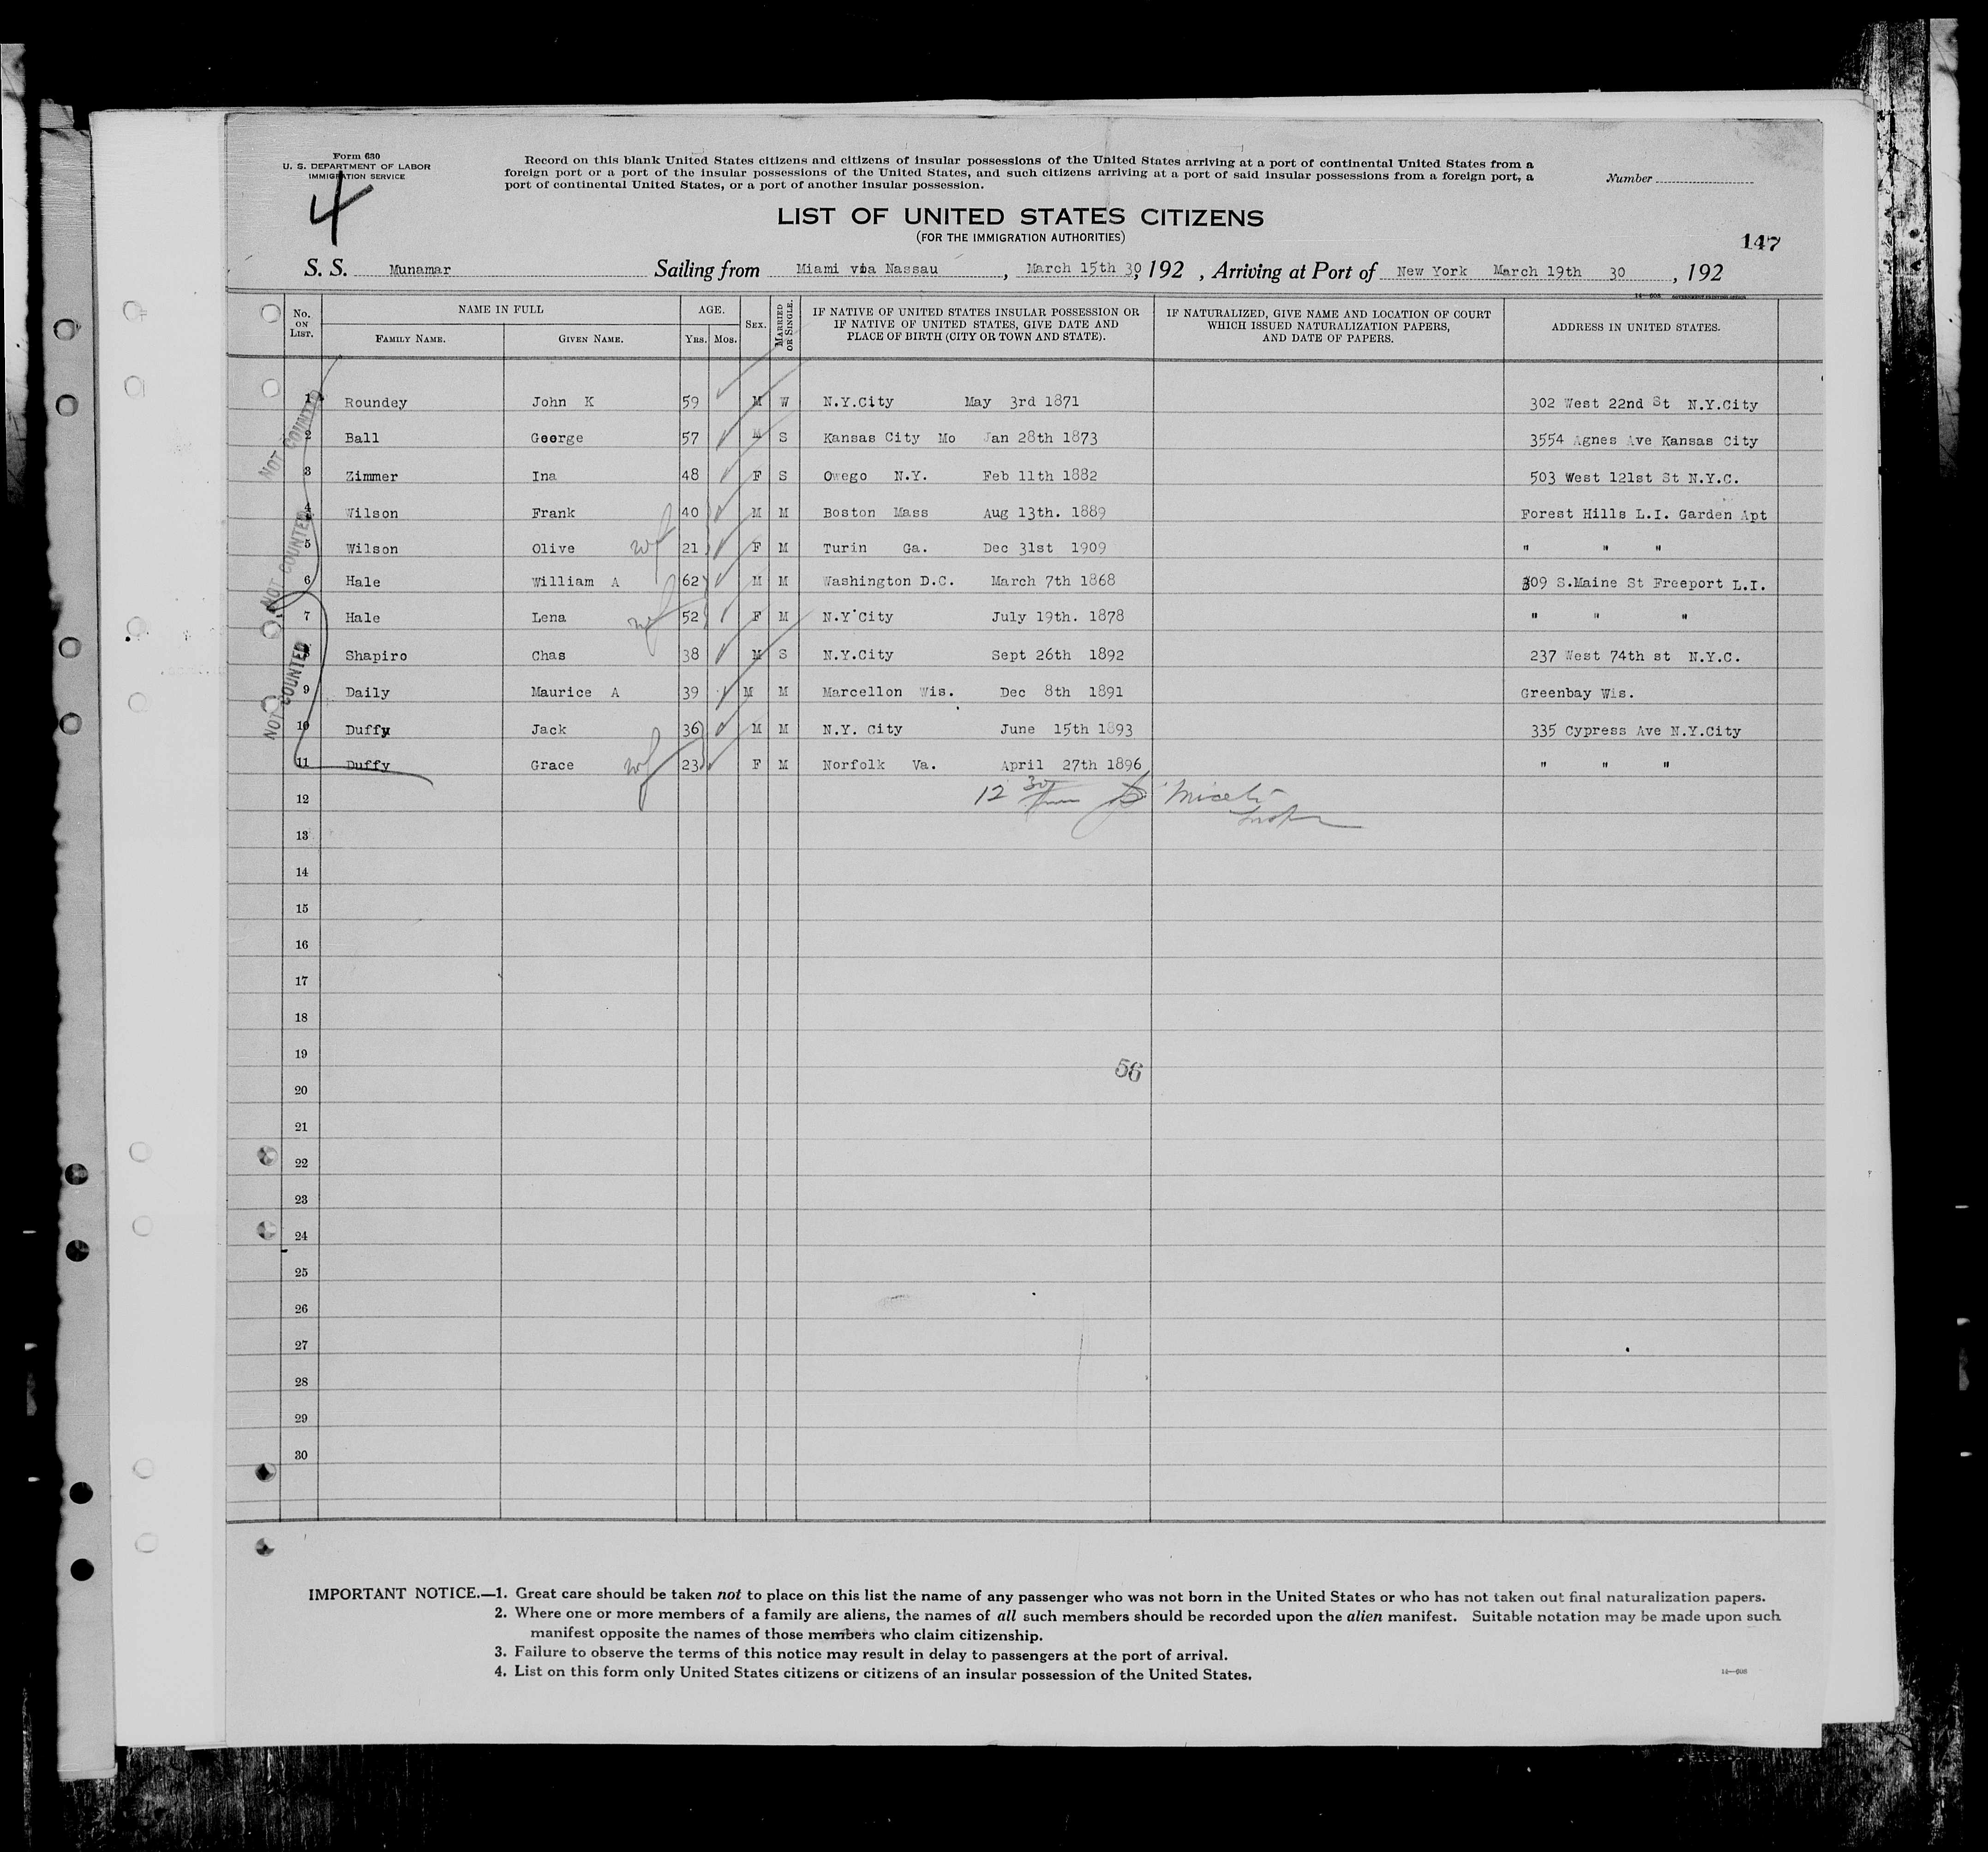 Form 630
U. S. DEPARTMENT OF LABOR
IMMIGRATION SERVICE
4
Record on this blank United States citizens and citizens of insular possessions of the United States arriving at a port of continental United States from a
foreign port or a port of the insular possessions of the United States, and such citizens arriving at a port of said insular possessions from a foreign port, a
port of continental United States, or a port of another insular possession.
Number
LIST OF UNITED STATES CITIZENS
(FOR THE IMMIGRATION AUTHORITIES)
147
S. S. Munamar Sailing from Miami via Nassau , March 15th 30, 192 , Arriving at Port of New York March 19th 30 , 192
14—608 GOVERNMENT PRINTING OFFICE
No. ON LIST. NAME IN FULL AGE. SEX. MARRIED OR SINGLE. IF NATIVE OF UNITED STATES INSULAR POSSESSION OR IF NATIVE OF UNITED STATES, GIVE DATE AND PLACE OF BIRTH (CITY OR TOWN AND STATE). IF NATURALIZED, GIVE NAME AND LOCATION OF COURT WHICH ISSUED NATURALIZATION PAPERS, AND DATE OF PAPERS. ADDRESS IN UNITED STATES.
FAMILY NAME. GIVEN NAME. YRS. MOS.
1 Roundey John K 59 M W N.Y.City May 3rd 1871 302 West 22nd St N.Y.City
2 Ball George 57 M S Kansas City Mo Jan 28th 1873 3554 Agnes Ave Kansas City
3 Zimmer Ina 48 F S Owego N.Y. Feb 11th 1882 503 West 121st St N.Y.C.
4 Wilson Frank 40 M M Boston Mass Aug 13th. 1889 Forest Hills L.I. Garden Apt
5 Wilson Olive wf 21 F M Turin Ga. Dec 31st 1909 " " "
6 Hale William A 62 M M Washington D.C. March 7th 1868 309 S.Maine St Freeport L.I.
7 Hale Lena wf 52 F M N.Y'City July 19th. 1878 " " "
8 Shapiro Chas 38 M S N.Y.City Sept 26th 1892 237 West 74th st N.Y.C.
9 Daily Maurice A 39 M M Marcellon Wis. Dec 8th 1891 Greenbay Wis.
10 Duffy Jack 36 M M N.Y. City June 15th 1893 335 Cypress Ave N.Y.City
11 Duffy Grace wf 23 F M Norfolk Va. April 27th 1896 " " "
NOT COUNTED
NOT COUNTED
NOT COUNTED
12 12 30
13
14
15
16
17
18
19
56
20
21
22
23
24
25
26
27
28
29
30
IMPORTANT NOTICE.—1. Great care should be taken not to place on this list the name of any passenger who was not born in the United States or who has not taken out final naturalization papers.
2. Where one or more members of a family are aliens, the names of all such members should be recorded upon the alien manifest. Suitable notation may be made upon such
manifest opposite the names of those members who claim citizenship.
3. Failure to observe the terms of this notice may result in delay to passengers at the port of arrival.
4. List on this form only United States citizens or citizens of an insular possession of the United States.
14—608